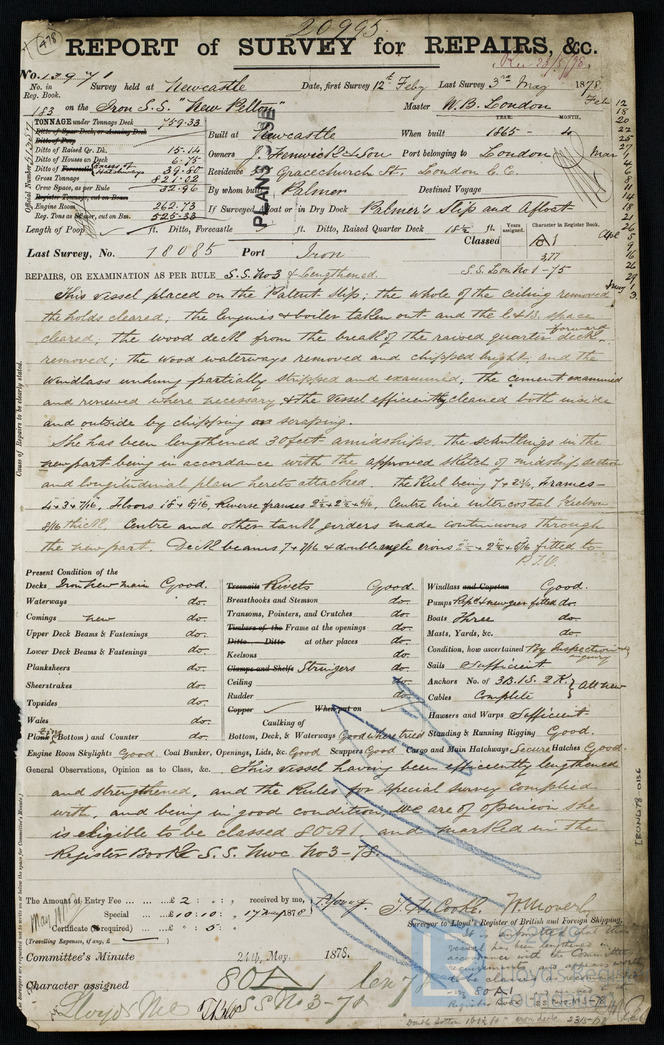 20995
(478)
REPORT of SURVEY for REPAIRS, &c.
No. 13971
No. in Reg. Book. Survey held at Newcastle Date, first Survey 12th Feby Last Survey 3rd May 1878
183 on the Iron S.S. "New Pelton" Master W.B. London
TONNAGE under Tonnage Deck 759.33
Ditto of Raised Qr. Dk. 15.14
Ditto of House on Deck 6.75
39.50
Gross Tonnage 821.02
Crew Space, as per Rule 32.96
Engine Room 262.73
525.33
YEAR. MONTH.
Built at Newcastle When built 1865 - 4
Owners J. Fenwick & Son Port belonging to London
Residence Gracechurch St. London E.C.
By whom built Palmer Destined Voyage
If Surveyed Afloat or in Dry Dock Palmer's Slip and Afloat
PLANS
Length of Poop ft. Ditto, Forecastle ft. Ditto, Raised Quarter Deck 18½ ft.
Years assigned. Character in Register Book.
Classed A1
3,77
Last Survey, No. 18085 Port Iron
S.S. Lon No 1-75
REPAIRS, OR EXAMINATION AS PER RULE S.S. No 3 & Lengthened.
This vessel placed on the Patent Slip; the whole of the ceiling removed
the holds cleared; the Engines & boiler taken out and the E & B. space
cleared; the wood deck from the break of the raised quarter deck forward
removed; the wood waterways removed and chipped bright, and the
windlass unhung partially stripped and examined, the cement examined
and renewed where necessary & the vessel efficiently cleaned both inside
and outside by chipping or scraping.
She has been lengthened 30 feet amidships, the scantlings in the
new part being in accordance with the approved sketch of midship section
and longitudinal plan hereto attached. The Keel being 7 + 2⅜, Frames -
4 + 3 + 7/16, Floors 18 + 8/16, Reverse frames 2½ + 2½ + 6/16, Centre line intercostal Keelson
8/16 thick. Centre and other tank girders made continuous through
the new part. Deck beams 7 + 7/16 & double angle irons 2½ + 2½ + 5/16 fitted to
P.T.O.
Cause of Repairs to be clearly stated.
Present Condition of the
Decks Iron new main Good.
Waterways do.
Comings new do.
Upper Deck Beams & Fastenings do.
Lower Deck Beams & Fastenings do.
Planksheers do.
Sheerstrakes do.
Topsides do.
Wales do.
(Bottom) and Counter do.
Treenails Rivets Good.
Breasthooks and Stemson do.
Transoms, Pointers, and Crutches do.
Timbers of the Frame at the openings do.
Ditto Ditto at other places do.
Keelsons do.
Clamps and Shelfs Stringers do.
Ceiling do.
Rudder do.
Copper When put on
Caulking of
Bottom, Deck, & Waterways Good where tried
Windlass and Capstan Good.
Pumps Repd & new gear fitted do.
Boats Three do.
Masts, Yards, &c. do.
Condition, how ascertained By Inspection
Sails Sufficient
Anchors No. of 3B.1S. 2K. } All new
Cables Complete
Hawsers and Warps Sufficient
Standing & Running Rigging Good.
Engine Room Skylights Good. Coal Bunker, Openings, Lids, &c. Good Scuppers Good Cargo and Main Hatchways Secure Hatches Good.
General Observations, Opinion as to Class, &c. This vessel having been efficiently lengthened
and strengthened, and the Rules for special survey complied
with, and being in good condition, we are of opinion she
is eligible to be classed 80A1 and marked in the
Register Book S.S. Nwc No 3-78.
IRON478-0156
The Amount of Entry Fee £ 2 : : received by me,
Special £ 10.10 : 17 May 1878
Certificate (if required) : 5 :
(Travelling Expenses, if any, £ )
T.H. Cooke.
Surveyor to Lloyd's Register of British and Foreign Shipping.
Committee's Minute 24th May. 1878.
Character assigned 80A
S S No 3-78
Lloyds